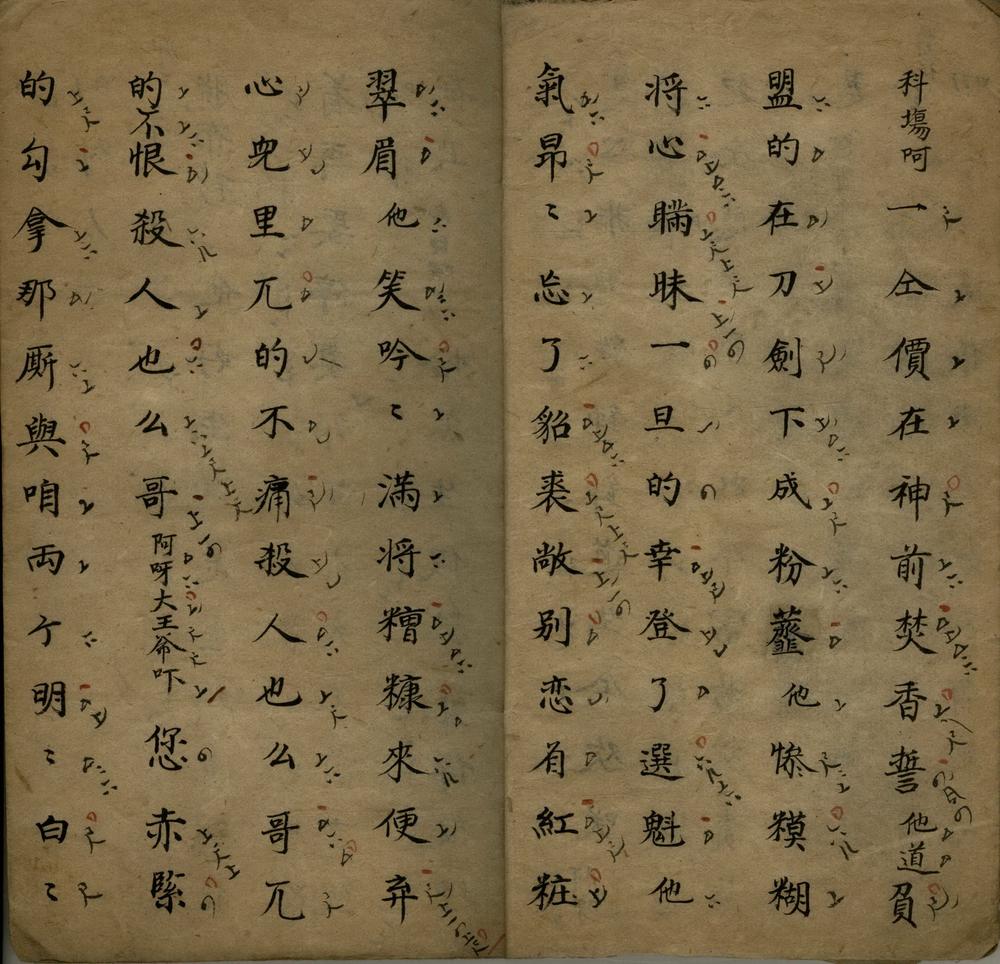 科塲啊一仝價在神前焚香誓他道負
盟的在刀劍下成粉虀他慘糢糊
将心瞞昧一旦的幸登了選魁他
氣昂〻忘了貂裘敞别恋有紅粧
翠眉他笑吟〻満将糟糠來便弃
心兜里兀的不痛殺人也么哥兀
的不恨殺人也么哥阿呀大王爷吓您赤緊
的勾拿那厮與咱両个明〻白〻